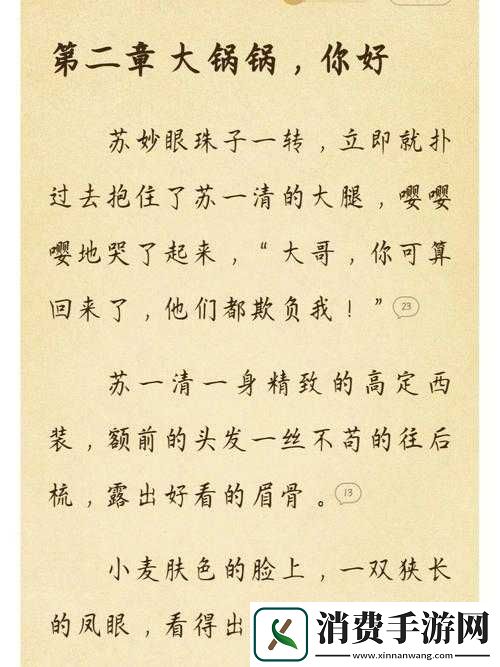 第二章 大锅锅，你好
苏妙眼珠子一转，立即就扑
过去抱住了苏一清的大腿，嘤嘤
嘤地哭了起来，“大哥，你可算
回来了，他们都欺负我！”23
苏一清一身精致的高定西
装，额前的头发一丝不苟的往后
梳，露出好看的眉骨。13
小麦肤色的脸上，一双狭长
的凤眼，看得出
消费手游网
www.xinnanwang.com